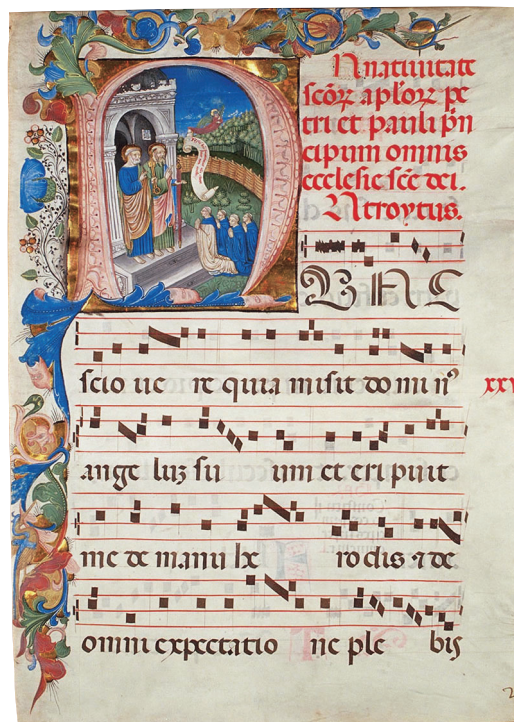 In natiuitate
scõꝝ aplõꝝ pe
tri et pauli pñ
cipum omnis
ecclesie scẽ dei.
Introytus.
NUNC
scio ue re quia misit do mi nꝰ
ange luz su um et eripuit
me de manu he ro dis ⁊ de
omni expectatio ne ple bis
2